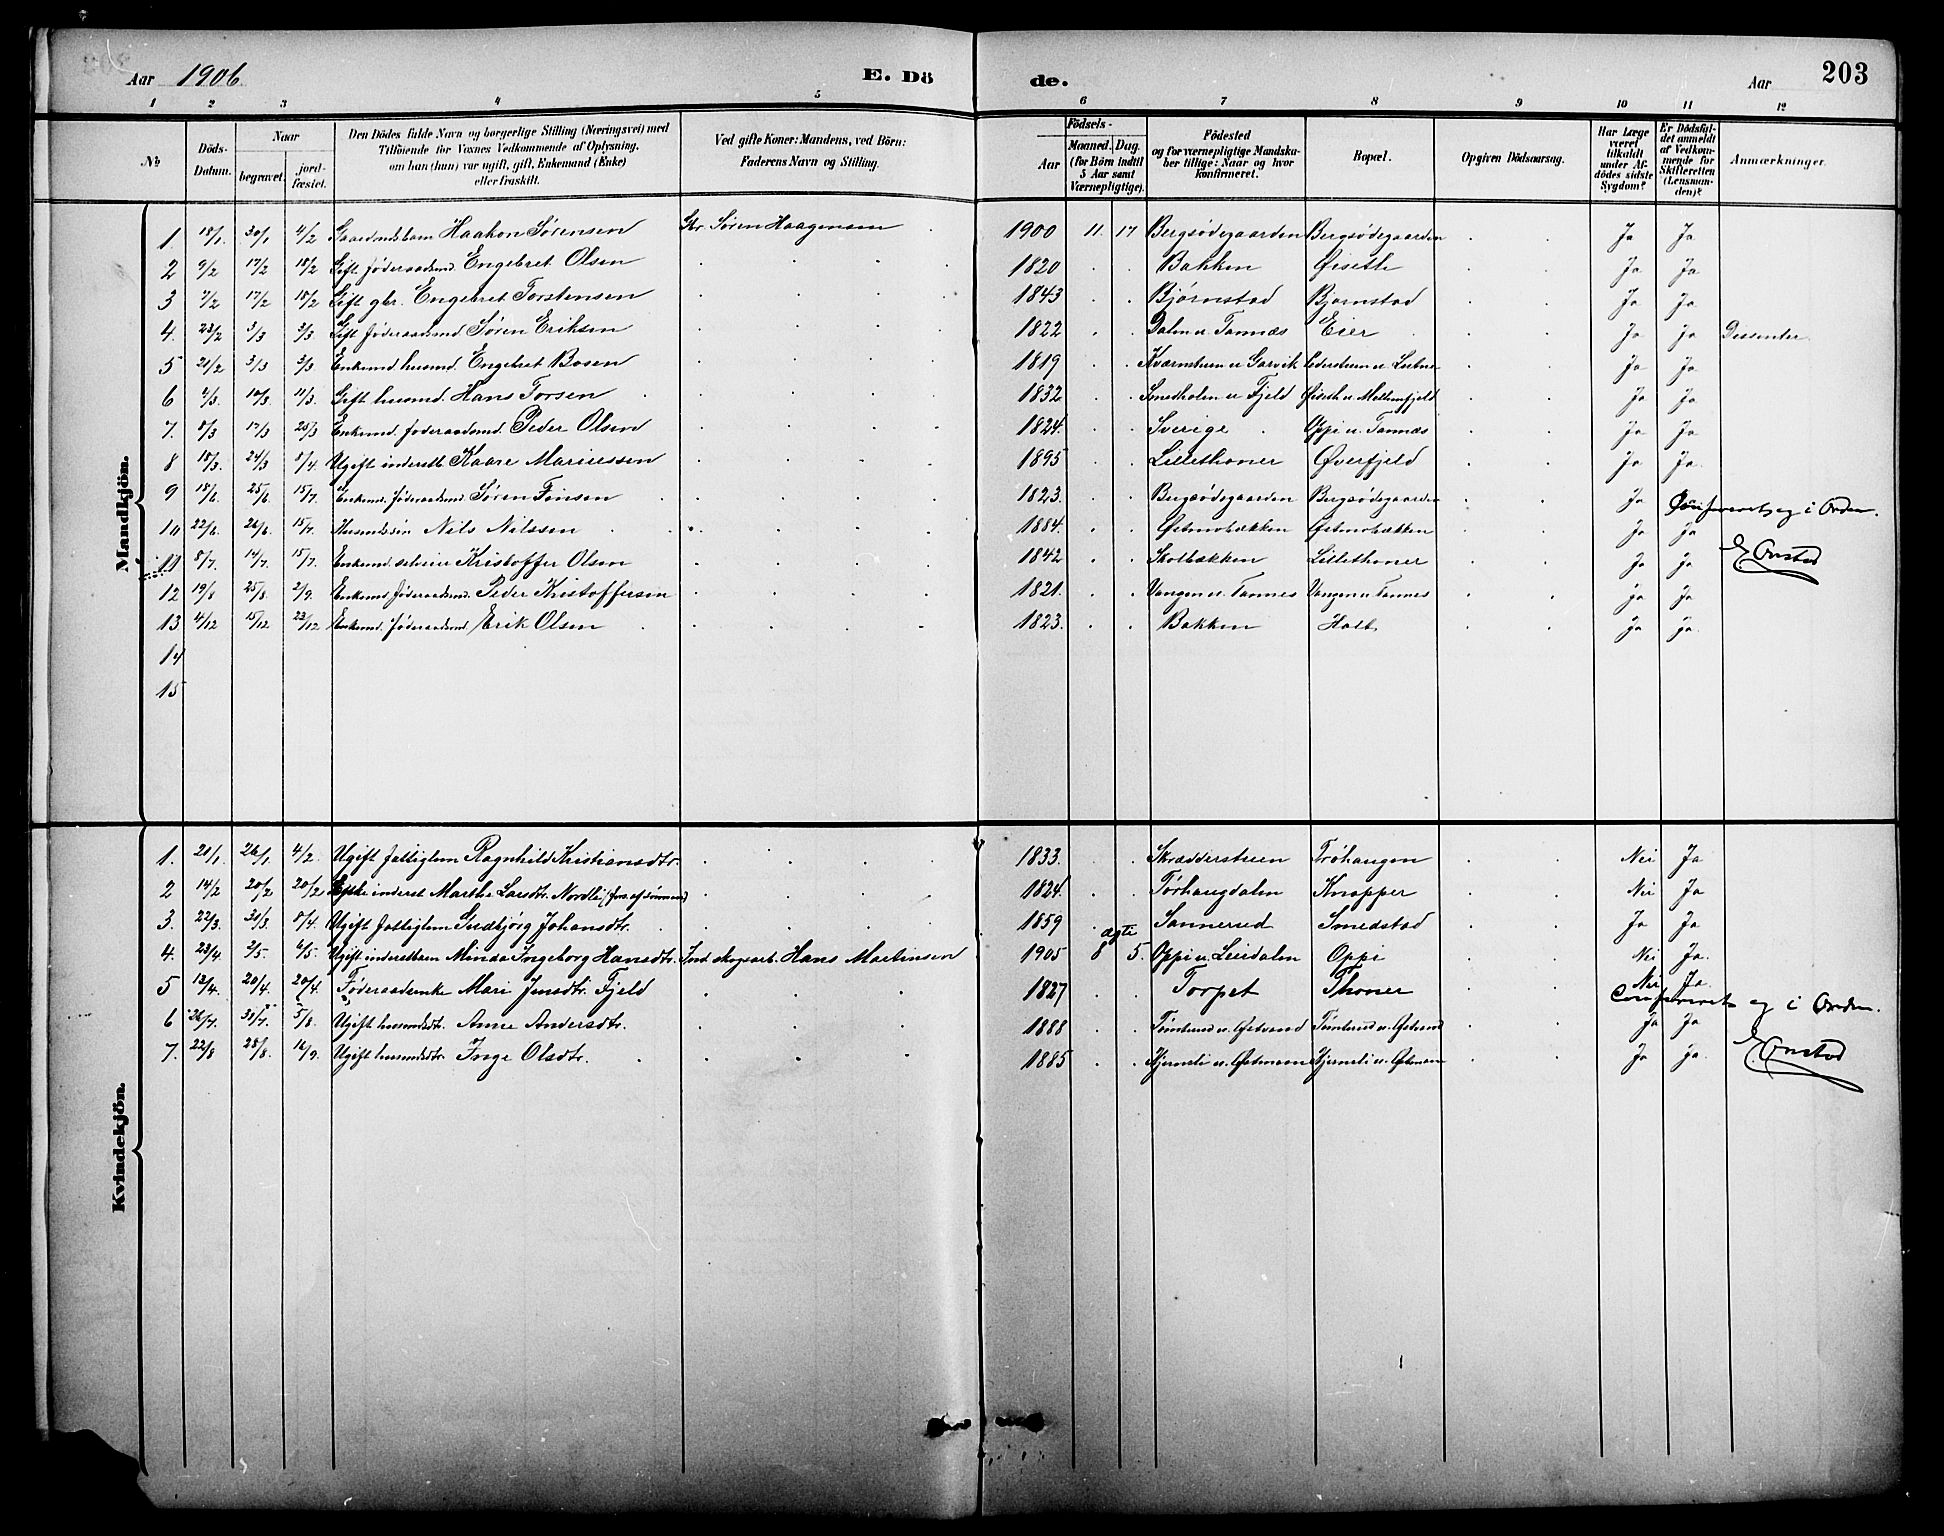 Aar 1906 E. Dö de. Aar 203
1 2 3 4 5 6 7 8 9 10 11 12
№ Döds-Datum. Naar begravet. jord-fæstet. Den Dödes fulde Navn og borgerlige Stilling (Næringsvei) med Tilföiende for Voxnes Vedkommende af Oplysning, om han (hun) var ugift, gift, Enkemand (Enke) eller fraskilt. Ved gifte Koner: Mandens, ved Börn: Faderens Navn og Stilling. Födsels- Aar Maaned. Dag. (for Börn indtil 5 Aar samt Værnepligtige). Födested og for værnepligtige Mandskaber tillige: Naar og hvor konfirmeret. Bopæl. Opgiven Dödsaarsag. Har Læge været tilkaldt under Afdödes sidste Sygdom? Er Dödsfaldet anmeldt af Vedkommende for Skifteretten (Lensmanden)? Anmærkninger.
Mandkjön.
1 18/1 30/1 4/2 Gaardmdsbarn Haakon Sørensen Gbr. Søren Haagensen 1900 11. 17 Bergsødegaarden Bergsødegaarden Ja Ja
2 9/2 17/2 18/2 Gift føderaadsmd. Engebret Olsen 1820 Bakken Øiseth Ja Ja
3 7/2 17/2 18/2 Gift gbr. Engebret Torstensen 1843 Bjørnstad Bjørnstad Ja Ja
4. 23/2 3/3 3/3 Gift føderaadsmd Søren Eriksen 1822 Dalen u. Tannæs Eier Ja Ja Dissenter
5 21/2 3/3 3/3 Enkemd. husmd. Engebret Bosen 1819 Kværnstuen u. Garvik Ja Ja
6 4/3 10/3 11/3 Gift husmd. Hans Torsen 1832 Smedholen u Fjeld Øiseth u. Mellemfjeld Ja Ja
7. 8/3 17/3 25/3 Enkemd. føderaadsmd. Peder Olsen 1824. Sverige Oppi u. Tannæs Ja Ja
8 18/3. 24/3 8/4. Ugift inderstb. Kaare Mariussen 1895 Lillethoner Øverfjeld Ja Ja.
9 18/6 25/6 15/7. Enkemd. føderaadsmd. Søren Finsen 1823. Bergsødegaarden Bergsødegaarden Ja
Confereret og i Orden.
10 22/6. 26/6 15/7. Husmdssøn Nils Nilssen 1884. Østmobækken Østmobækken Ja Ja
11 8/7. 14/7. 15/7. Enkemd. selveier Kristoffer Olsen 1842 Skolbakken Lillethoner Ja Ja
E. Onstad
12 19/8 25/8. 2/9. Enkemd. føderaadsmd. Peder Kristoffersen 1821. Vangen u. Tannes Vangen u. Tannes Ja Ja
13 4/12 15/12 23/12 Enkemd. føderaadsmd Erik Olsen 1823. Bakken Holt Ja Ja.
14
15
Kvindekjön.
1. 21/1. 26/1 4/2. Ugift fattiglem Ragnhild Kristiansdtr. 1833. Skrædderstuen Trøhaugen Nei Ja
2 14/2 20/2 20/2 inderst Marthe Larsdtr. Nordli 1824. Tørhaugdalen Knapper Nei Ja
3. 22/3. 30/3. 8/4. Ugift fattiglem Gudbjørg Johansdtr. 1859 Sannerud Smedstad Ja Ja
ægte
4. 23/4. 3/5. 6/5. Ugift inderstbarn Minda Ingeborg Hansdtr. Ind. skogsarb. Hans Martinsen 1905 8 5. Oppi u. Leirdalen Oppi Nei Ja.
5 12/4. 20/4. 20/4. Føderaadsenke Mari Jensdtr. Fjeld 1827 Torpet Thoner Nei Ja
Confereret og i Orden.
6 26/7. 30/7. 5/8. Ugift husmdsdtr. Anne Andersdtr. 1888 Tømterud u. Østvand Tømterud u. Østvand Ja Ja
7. 22/8 28/8. 16/9. Ugift husmdsdtr. Inge Olsdtr. 1885 Hjerneli u. Østmoen Hjerneli u. Østmoen Ja Ja
E. Onstad